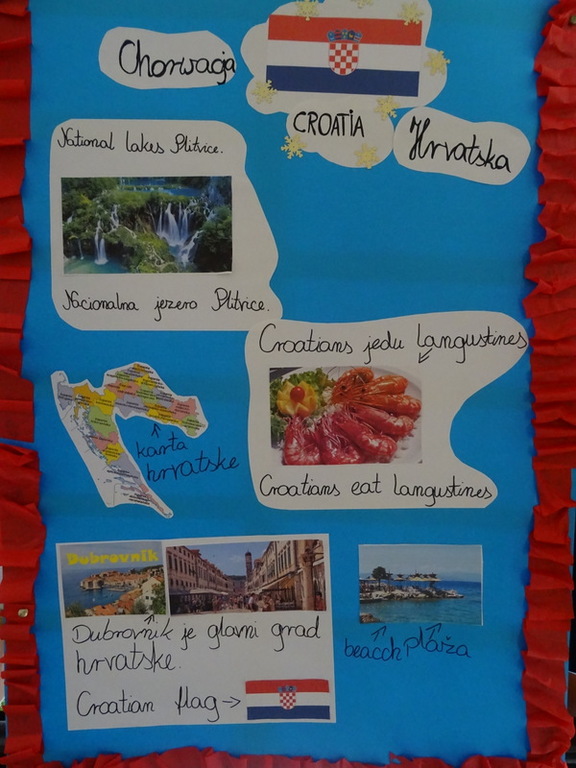 Chorwacja
CROATIA
Hrvatska
National lakes Plitvice.
Nacionalna jezero Plitvice.
Croatians jedu langustines
Croatians eat langustines
karta
hrvatske
Dubrovnik
Dubrovnik je glavni grad
hrvatske.
Croatian flag →
beacch plaża